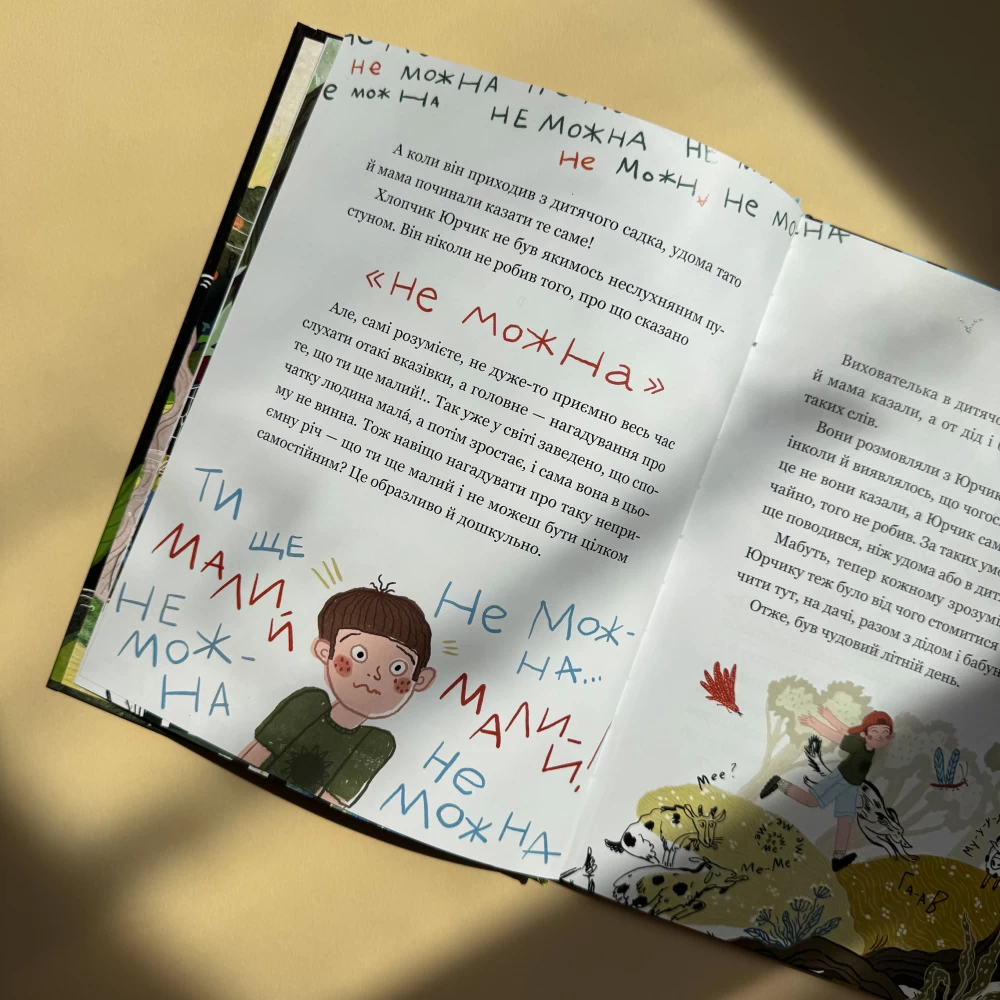 не можНА
можНА
НЕ МОЖНА НЕ
Не МожНА Не МожНА
А коли він приходив з дитячого садка, удома тато
й мама починали казати те саме!
Хлопчик Юрчик не був якимось неслухняним пу-
стуном. Він ніколи не робив того, про що сказано
«Не можНа»
Але, самі розумієте, не дуже-то приємно весь час
слухати отакі вказівки, а головне — нагадування про
те, що ти ще малий!.. Так уже у світі заведено, що спо-
чатку людина мала́, а потім зростає, і сама вона в цьо-
му не винна. Тож навіщо нагадувати про таку непри-
ємну річ — що ти ще малий і не можеш бути цілком
самостійним? Це образливо й дошкульно.
Ти
ще
МАЛИЙ
НЕ
МОЖ-
НА
Не Мож-
НА...
МАЛИ-
Й!
Не
МожНА
Вихователька в
й мама казали, а от дід і
таких слів.
Вони розмовляли з Юрчик
інколи й виявлялось, що
це не вони казали, а Юрчик сам
чайно, того не робив. За таких
ще поводився, ніж удома або в
Мабуть, тепер кожному
Юрчику теж було від чого стомитися
чити тут, на дачі, разом з дідом і
Отже, був чудовий літній день.
Мее?
Ме-Ме-Ме
Га-аВ